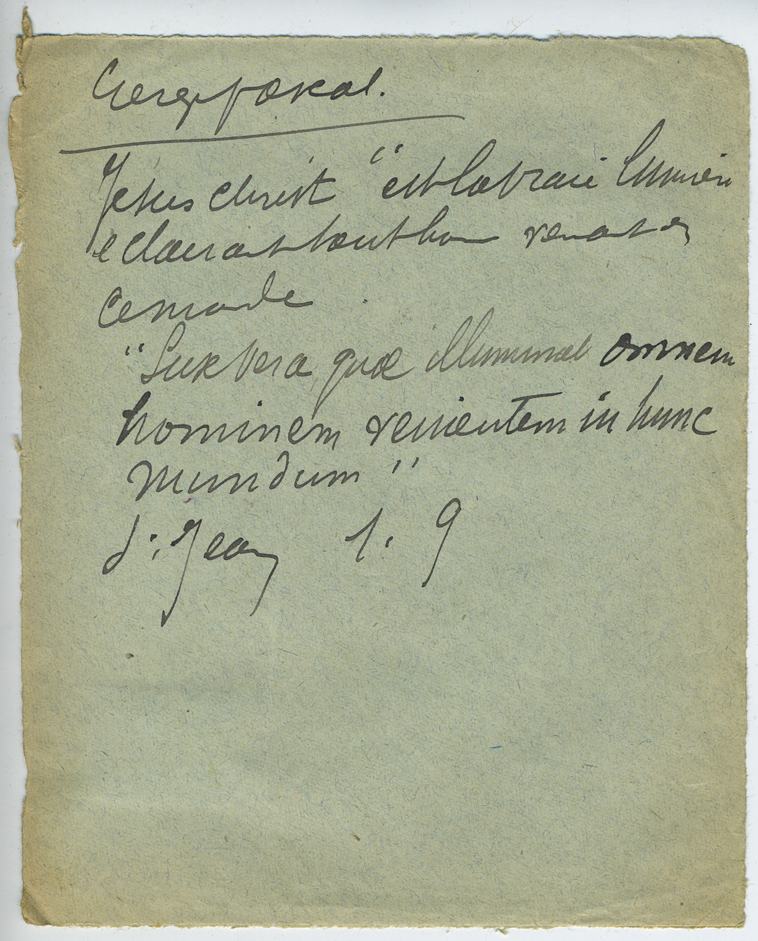 Cierge pascal.
Jésus Christ "est la vraie lumière
eclairant tout hom venant en
ce monde
"Lux vera quæ illuminat omnem
hominem venientem in hunc
mundum"
S. Jean 1. 9